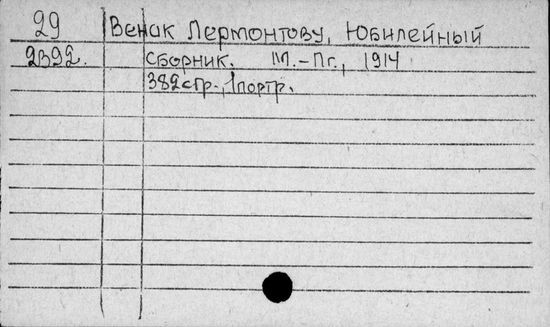 29 Венок Лермонтову, Юбилейный
2392. Сборник. М.-Пг., 1914
382стр., 1портр.